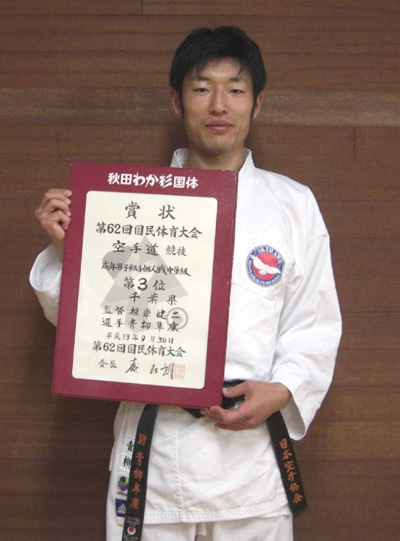 秋田わか杉国体
賞状
第62回国民体育大会
空手道 競技
成年男子組手個人戦中量級
第3位
千葉県
監督 根岸健二
選手 青柳隼廣
平成19年9月30日
第62回国民体育大会
会長
日本空手協会
青柳隼廣
青柳